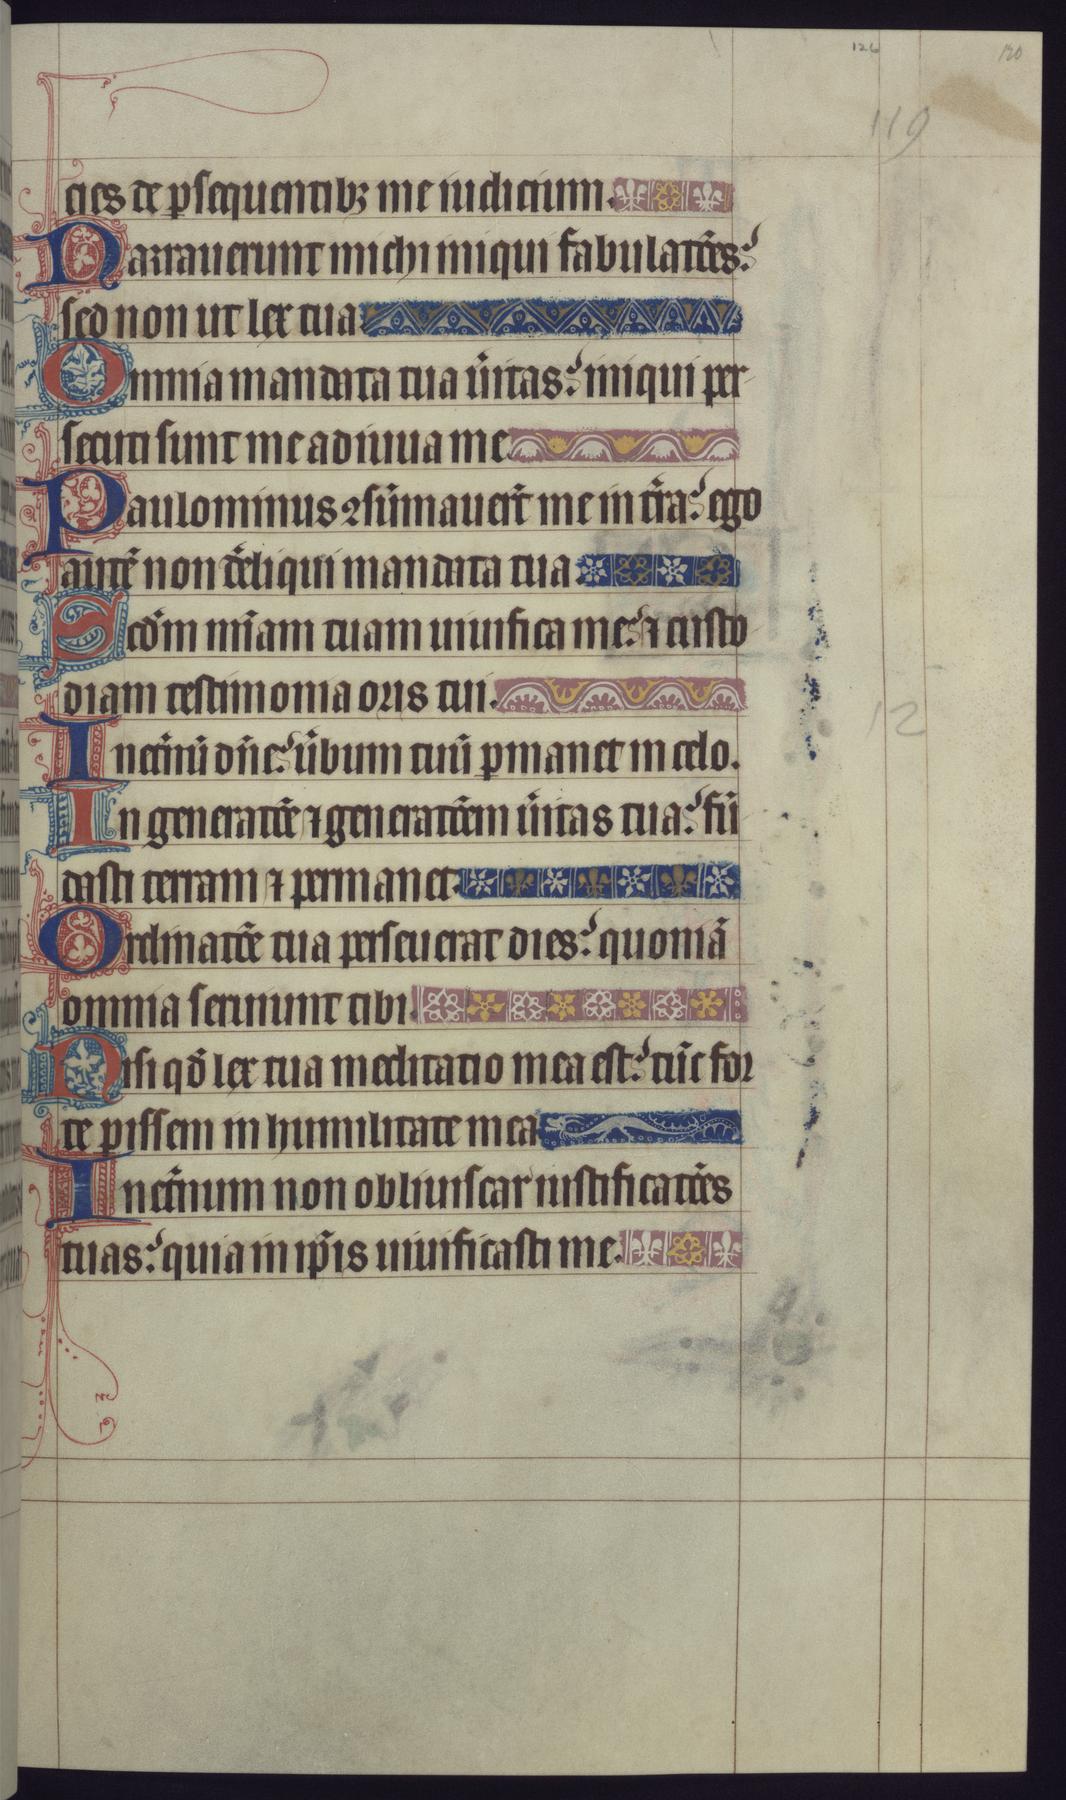 126
120
119
cies de p̱sequentibꝫ me iudicium.
Narrauerunt michi iniqui fabulatc̃es:
sed non ut lex tua
Omnia mandata tua ũitas: iniqui per-
secuti sunt me adiuua me
Paulominus ꝯsũmauer̃t me in tr̃a: ego
autẽ non dẽliqui mandata tua
Scdm̃ mĩam tuam uiuifica me: ⁊ custo-
diam testimonia oris tui.
In etñu dñe: ũbum tuũ ꝑmanet in celo.
12
In generatc̃e ⁊ generatc̃em ũitas tua: fũ
dasti terram ⁊ permanet.
Ordinatc̃e tua perseuerat dies: quoniã
omnia seruiunt tibi
Nisi qd̃ lex tua meditatio mea est: tũc for
te ꝑissem in humilitate mea
In etñum non obliuiscar iustificatc̃es
tuas: quia in ip̃is uiuificasti me.